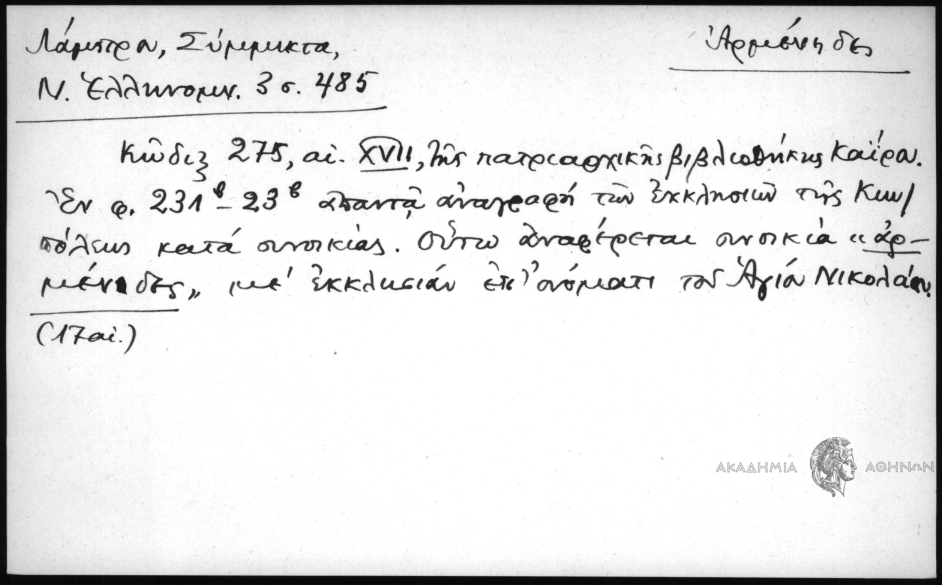 Λάμπρου, Σύμμικτα,
Ἀρμένηδες
Ν. Ἑλληνομν. 3 σ. 485
Κῶδιξ 275, αἰ. XVII, τῆς πατριαρχικῆς βιβλιοθήκης Καΐρου.
Ἐν φ. 231β-23β ἀπαντᾷ ἀναγραφή τῶν ἐκκλησιῶν τῆς Κων/
πόλεως κατά συνοικίας. Οὕτω ἀναφέρεται συνοικία «ἀρ-
μένηδες» μέ ἐκκλησίαν ἐπ' ὀνόματι τοῦ Ἁγίου Νικολάου.
(17 αἰ.)
ΑΚΑΔΗΜΙΑ ΑΘΗΝΩΝ